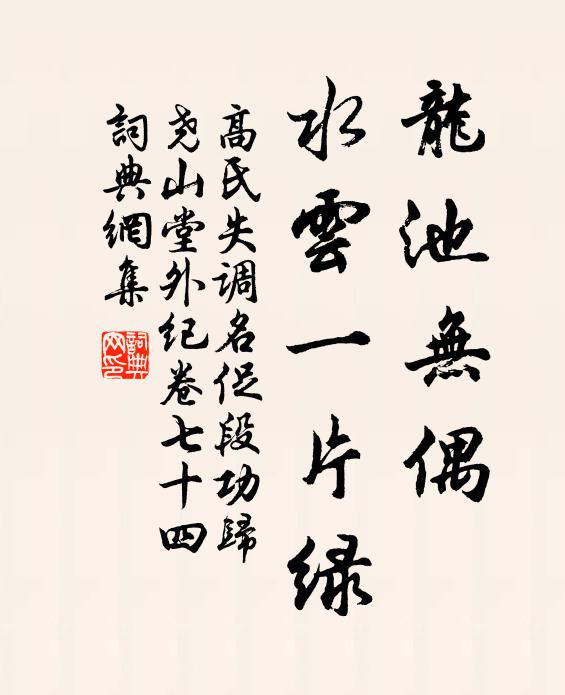 龍池無偶
水雲一片緑
高氏失调名促段功歸
尧山堂外纪卷七十四
詞典網集
詞典網印